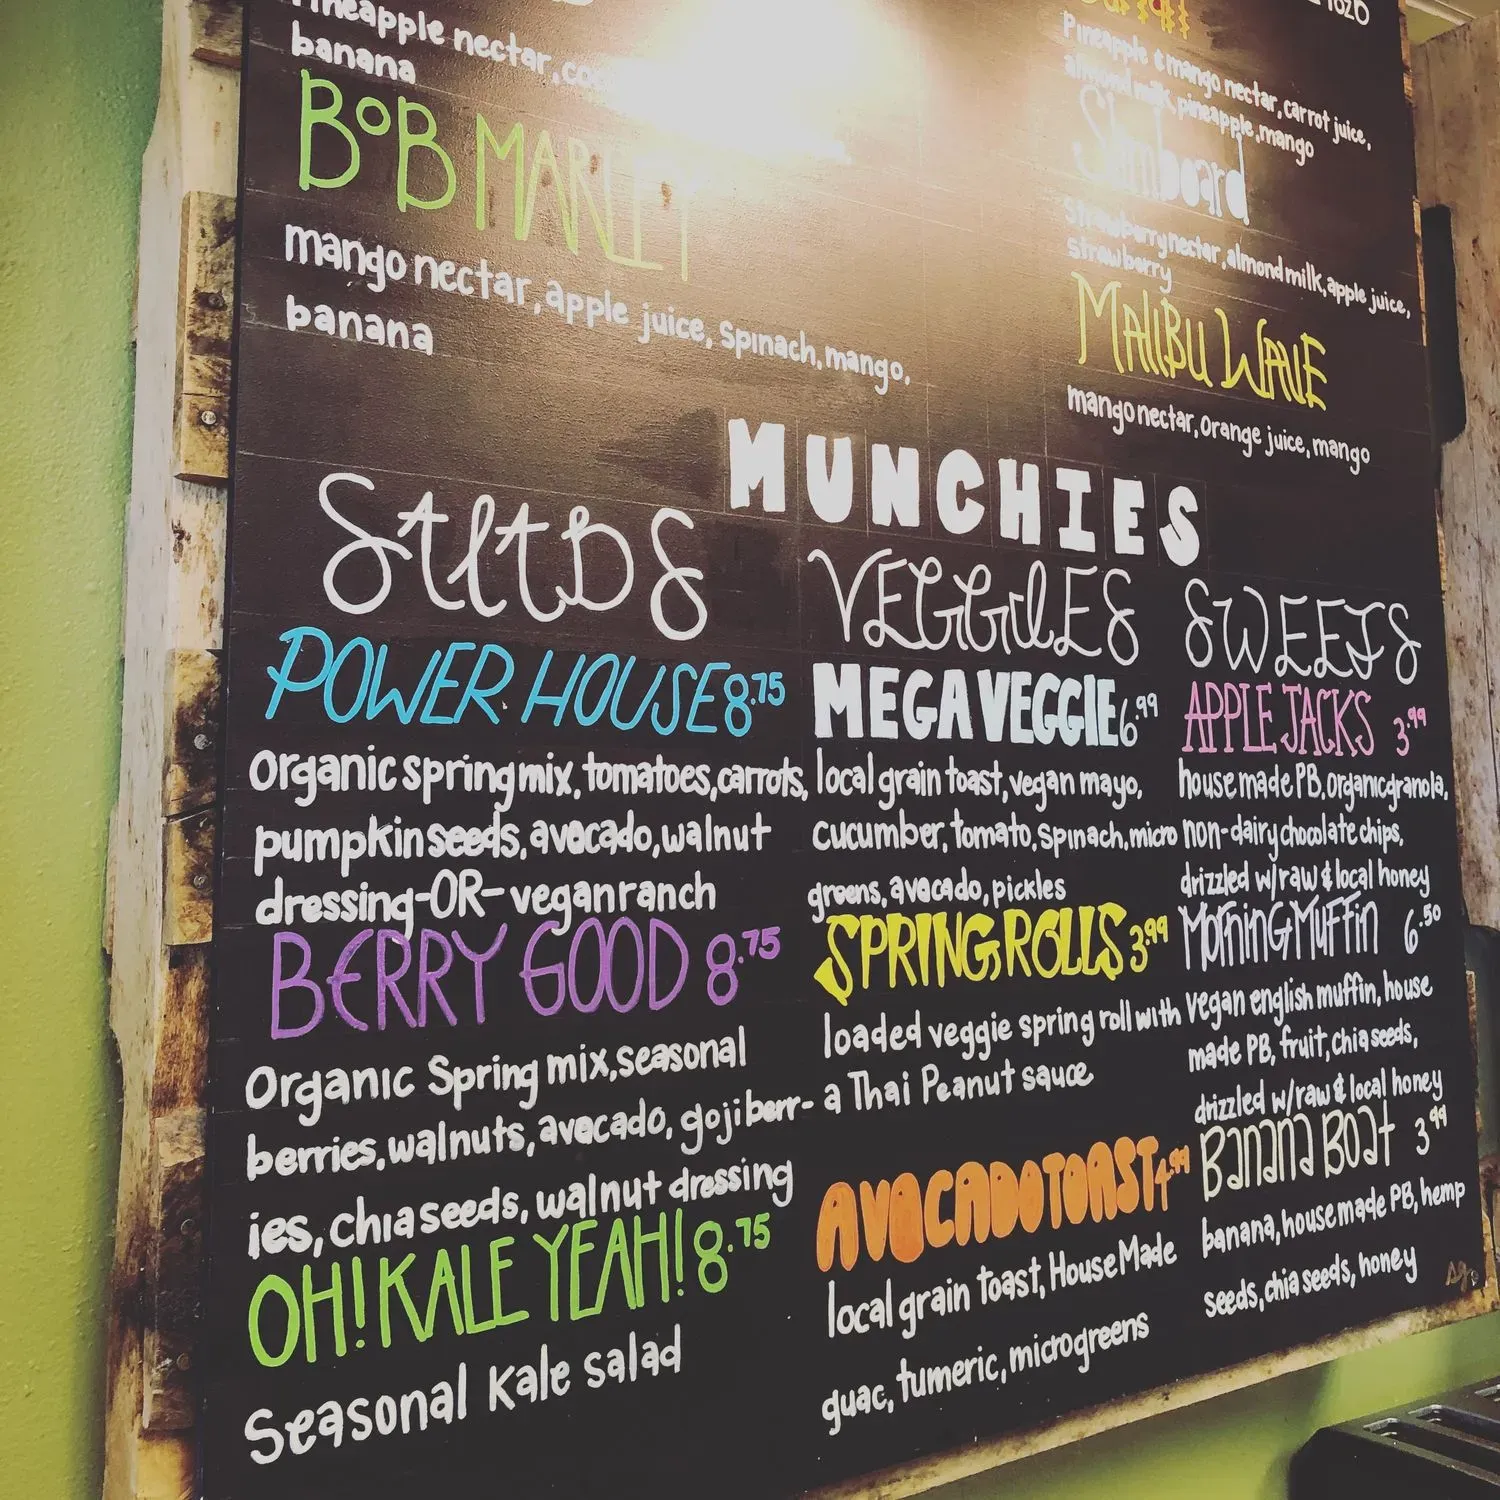 Pineapple nectar,
banana
BOB MARLEY
mango nectar, apple juice, spinach, mango,
banana
16zo
Pineapple & mango nectar, carrot juice,
almond milk, pineapple, mango
Slimboard
Strawberry nectar, almond milk, apple juice,
strawberry
MALIBU WAVE
mango nectar, orange juice, mango
MUNCHIES
SALADS
POWER HOUSE 8.75
Organic spring mix, tomatoes, carrots,
pumpkin seeds, avocado, walnut
dressing -OR- vegan ranch
BERRY GOOD 8.75
Organic Spring mix, seasonal
berries, walnuts, avocado, goji berr-
ies, chia seeds, walnut dressing
OH! KALE YEAH! 8.75
Seasonal Kale salad
VEGGIES
MEGA VEGGIE 6.99
local grain toast, vegan mayo,
cucumber, tomato, spinach, micro
greens, avocado, pickles
SPRING ROLLS 3.99
loaded veggie spring roll with
a Thai Peanut sauce
AVOCADO TOAST 4.99
local grain toast, House Made
guac, tumeric, microgreens
SWEETS
APPLE JACKS 3.99
house made PB, organic granola,
non-dairy chocolate chips,
drizzled w/raw & local honey
Morning Muffin 6.50
vegan english muffin, house
made PB, fruit, chia seeds,
drizzled w/raw & local honey
Banana Boat 3.99
banana, house made PB, hemp
seeds, chia seeds, honey